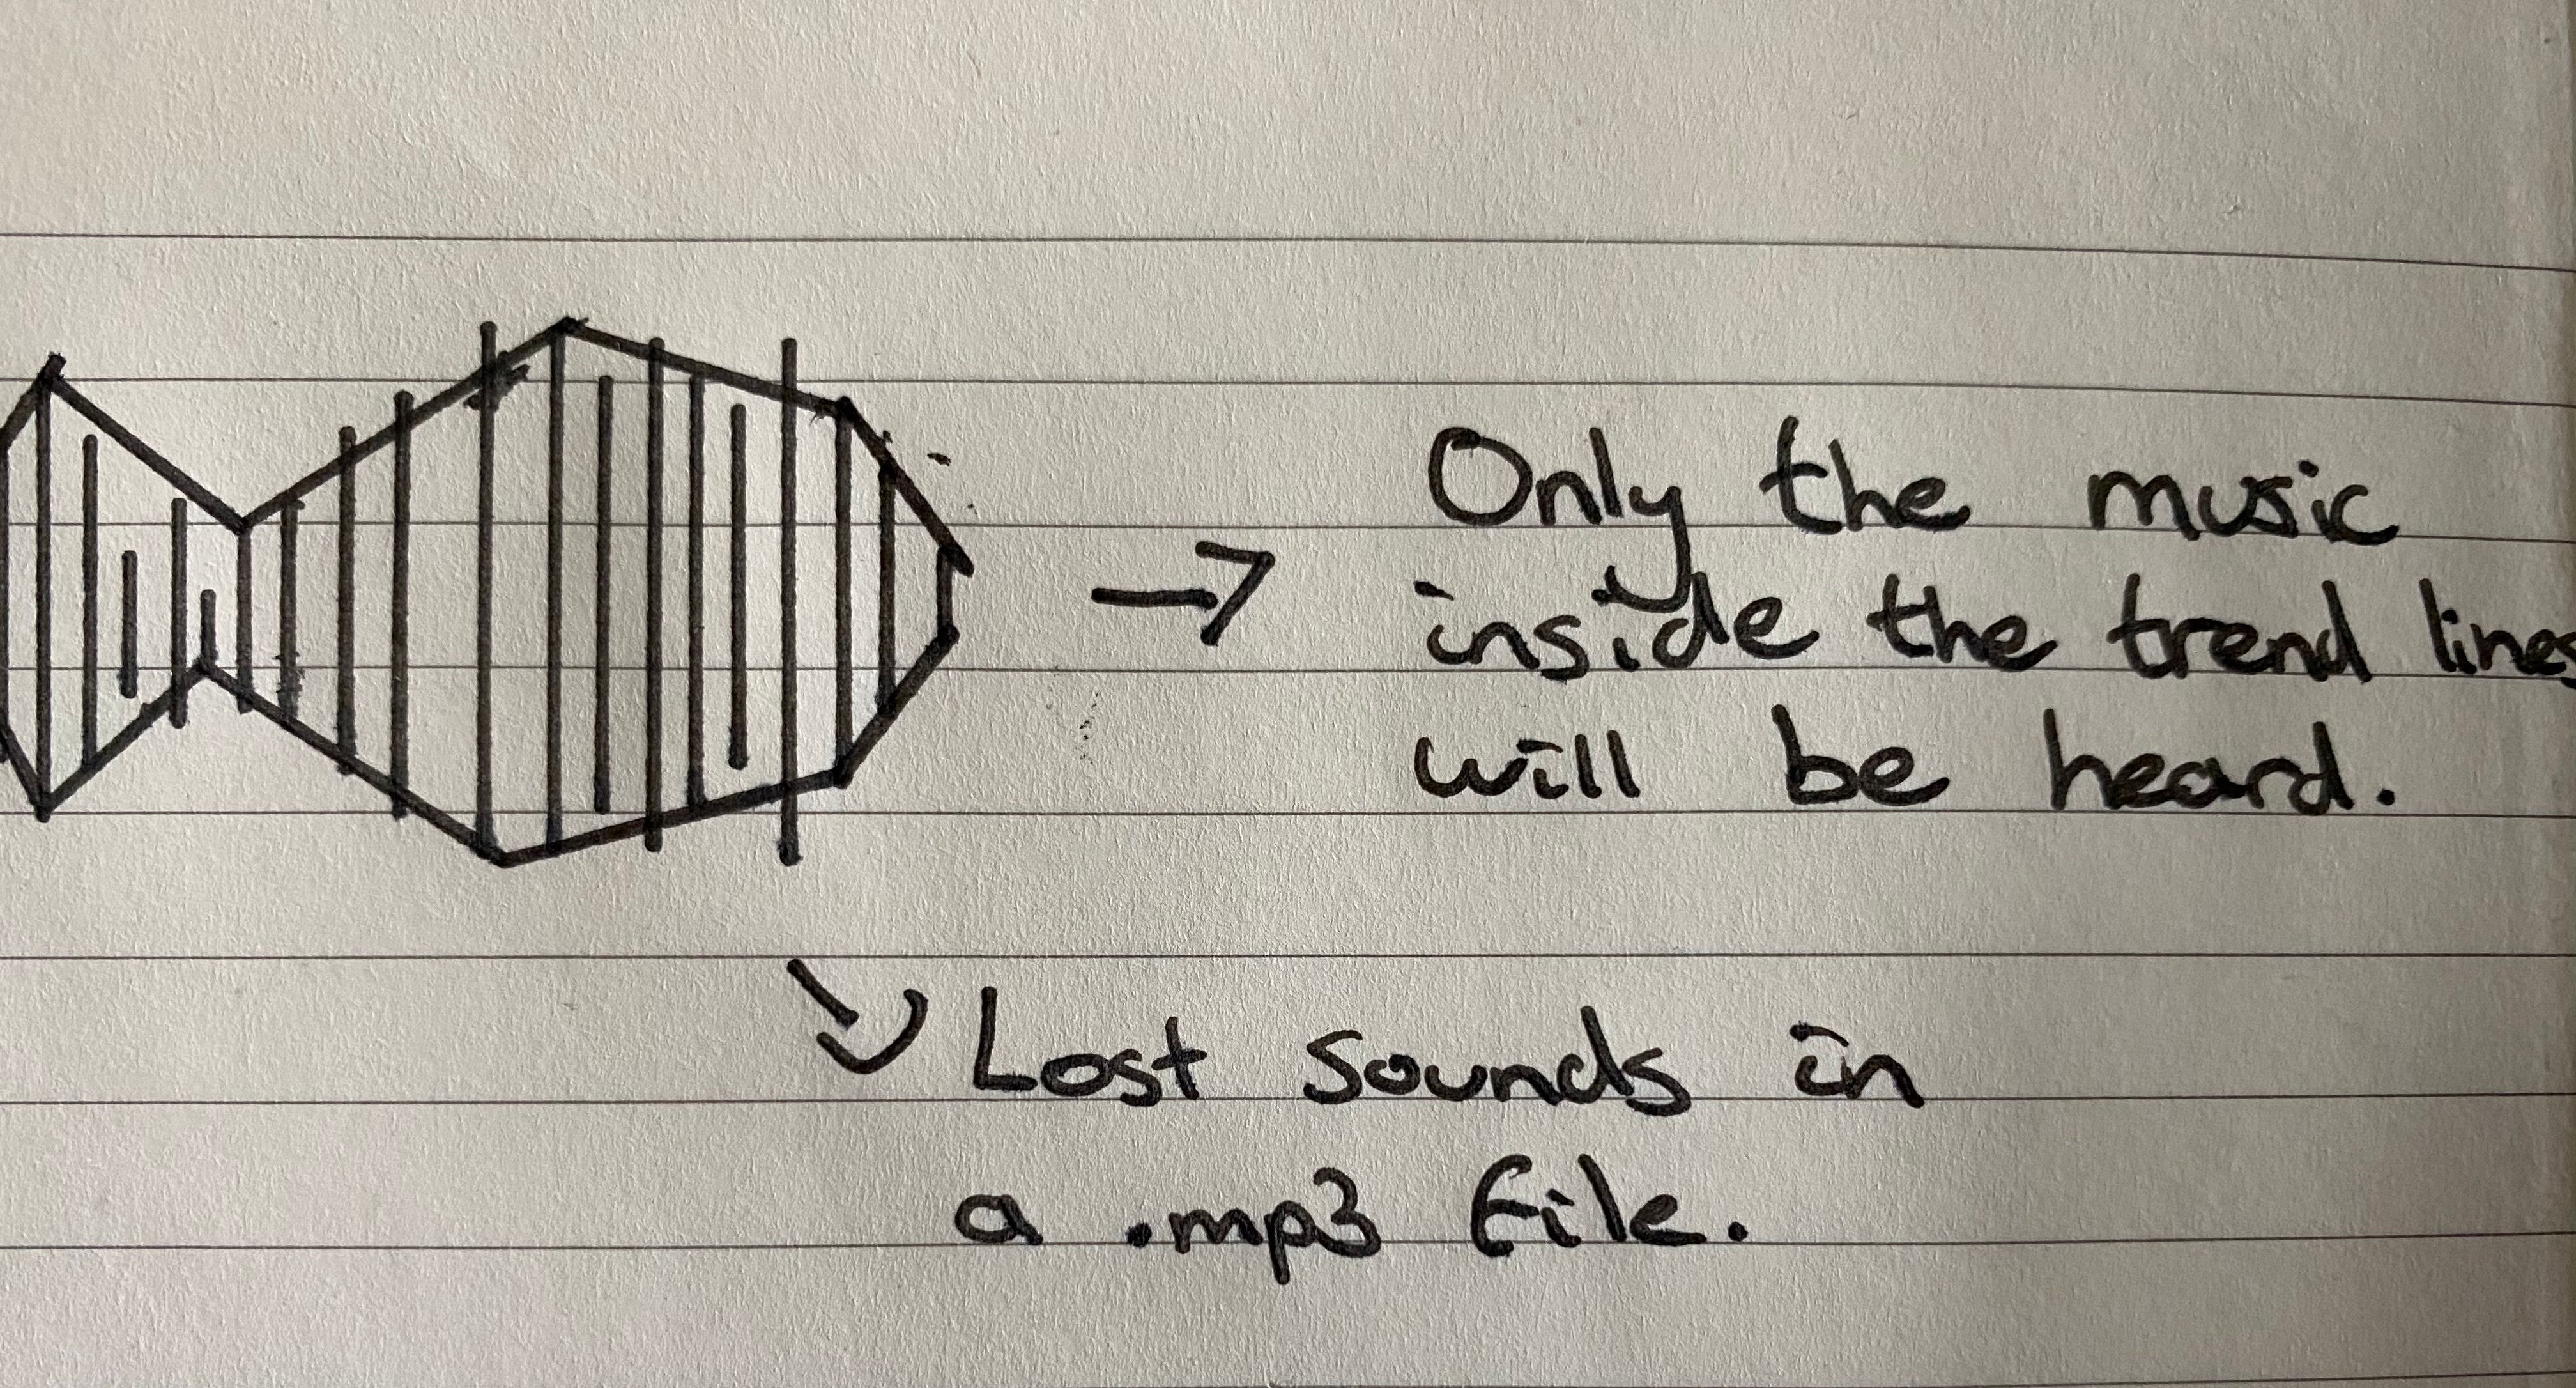 Only the music
inside the trend lines
will be heard.
Lost sounds in
a .mp3 file.